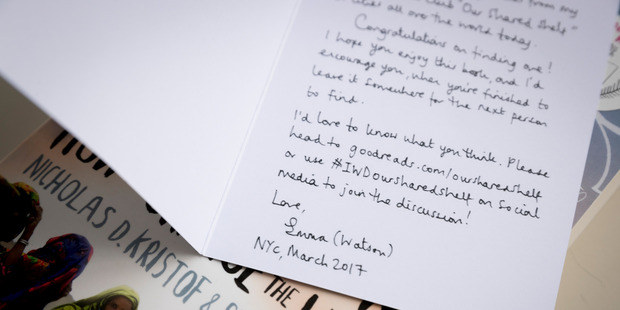 from my
"Our Shared Shelf"
cities all over the world today.
Congratulations on finding one!
I hope you enjoy this book, and I'd
encourage you, when you're finished to
leave it somewhere for the next person
to find.
I'd love to know what you think. Please
head to goodreads.com/oursharedshelf
or use #IWDoursharedshelf on Social
media to join the discussion!
Love,
Emma (Watson)
NYC, March 2017
THE
NICHOLAS D. KRISTOF &